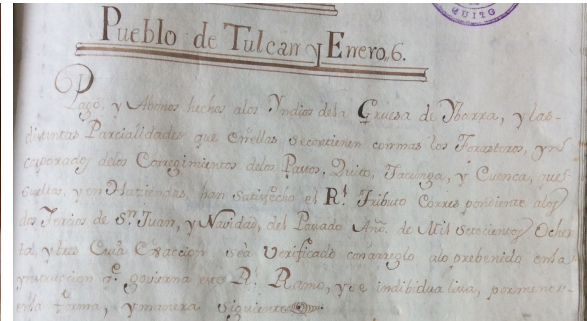 QUITO
Pueblo de Tulcan y Enero,,6.
Pagos, y Abonos hechos alos Yndios dela Gruesa de Ybarra, y las-
distintas Parcialidades que enellas secontienen conmas los Forasteros, yn
corporados delos Corregimientos delos Pastos, Quito, Tacunga, y Cuenca, que
sueltos, y en Haziendas, han satisfecho el Rl. Tributo Corres pondiente alos
dos Tercios de Sn. Juan, y Navidad, del Pasado Año. de Mil Setecientos Ochen
ta, y tres Cuia Exaccion sea Verificado conarreglo alo prebenido enla
ynstruccion qe. govierna este Rl. Ramo, y se indibidualiza, pormenor-
enla forma, y manera siguiente